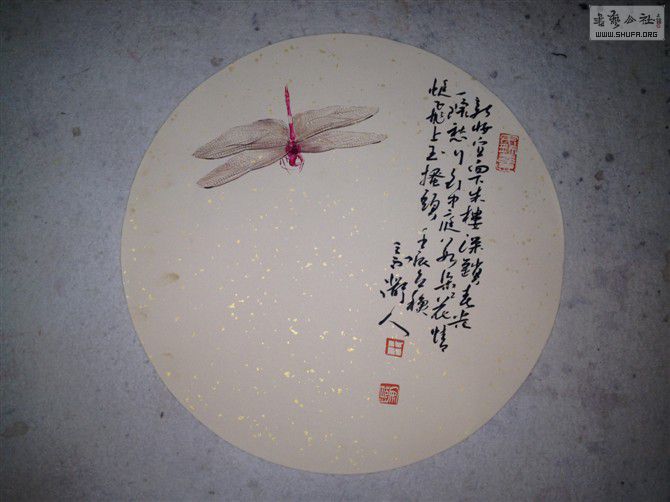 書藝公社
WWW.SHUFA.ORG
新妝宜面下朱樓深鎖春光
一院愁行到中庭數朵花蜻
蜓飛上玉搔頭 壬辰
人